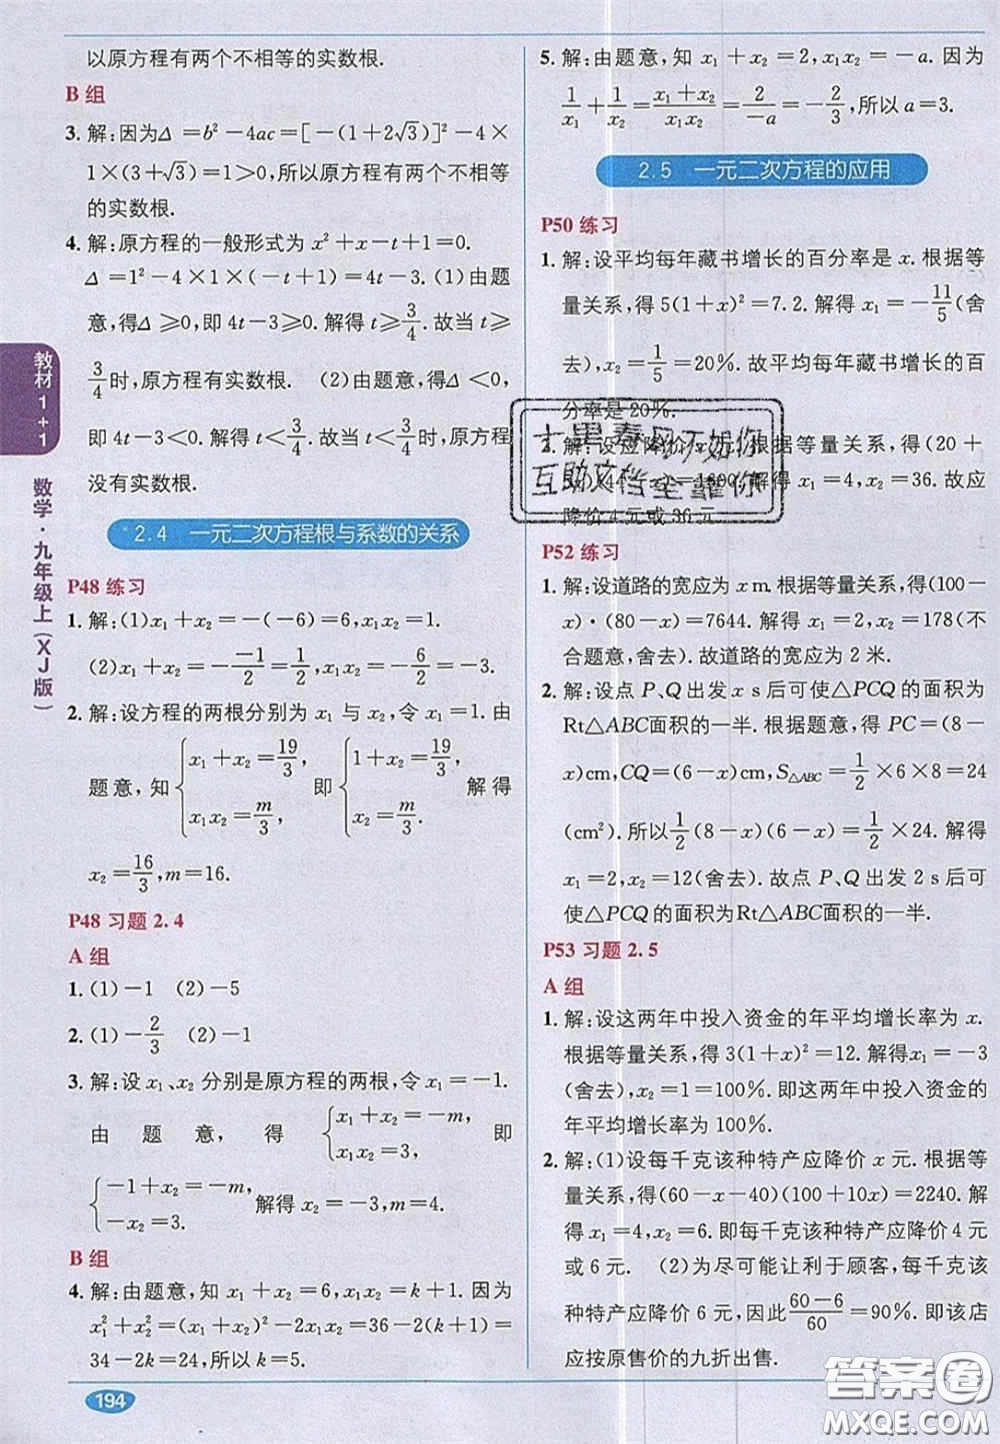 以原方程有两个不相等的实数根.
B 组
3. 解:因为Δ=b²-4ac=[-(1+2√3)]²-4×
1×(3+√3)=1>0,所以原方程有两个不相等
的实数根.
4. 解:原方程的一般形式为 x²+x-t+1=0.
Δ=1²-4×1×(-t+1)=4t-3.(1)由题
意,得Δ≥0,即 4t-3≥0.解得 t≥3/4.故当 t≥
3/4时,原方程有实数根. (2)由题意,得Δ<0,
即 4t-3<0.解得 t<3/4.故当 t<3/4时,原方程
没有实数根.
2.4 一元二次方程根与系数的关系
P48 练习
1. 解:(1)x₁+x₂=-(-6)=6,x₁x₂=1.
(2)x₁+x₂=-(-1/2)=1/2,x₁x₂=-6/2=-3.
2. 解:设方程的两根分别为 x₁ 与 x₂,令 x₁=1.由
题意,知{x₁+x₂=19/3, x₁x₂=m/3, 即{1+x₂=19/3, x₂=m/3. 解得
x₂=16/3,m=16.
P48 习题 2.4
A 组
1. (1)-1 (2)-5
2. (1)-2/3 (2)-1
3. 解:设 x₁、x₂ 分别是原方程的两根,令 x₁=-1.
由题意,得{x₁+x₂=-m, x₁x₂=3, 即
{-1+x₂=-m, -x₂=3. 解得 x₂=-3,m=4.
B 组
4. 解:由题意,知 x₁+x₂=6,x₁x₂=k+1.因为
x₁²+x₂²=(x₁+x₂)²-2x₁x₂=36-2(k+1)=
34-2k=24,所以 k=5.
194
教材1+1
数学·九年级上(XJ版)
5. 解:由题意,知 x₁+x₂=2,x₁x₂=-a.因为
1/x₁+1/x₂=(x₁+x₂)/(x₁x₂)=2/(-a)=-2/3,所以 a=3.
2.5 一元二次方程的应用
P50 练习
1. 解:设平均每年藏书增长的百分率是 x.根据等
量关系,得 5(1+x)²=7.2.解得 x₁=-11/5(舍
去),x₂=1/5=20%.故平均每年藏书增长的百
分率是 20%.
2. 解:设应降价 x 元.根据等量关系,得(20+
x)(44-x)=1600.解得 x₁=4,x₂=36.故应
降价 4 元或 36 元.
十里春风不如你
互助文档全靠你
P52 练习
1. 解:设道路的宽应为 x m.根据等量关系,得(100-
x)·(80-x)=7644.解得 x₁=2,x₂=178(不
合题意,舍去).故道路的宽应为 2 米.
2. 解:设点 P、Q 出发 x s 后可使△PCQ 的面积为
Rt△ABC面积的一半.根据题意,得 PC=(8-
x)cm,CQ=(6-x)cm,S△ABC=1/2×6×8=24
(cm²).所以1/2(8-x)(6-x)=1/2×24.解得
x₁=2,x₂=12(舍去).故点 P、Q 出发 2 s 后可
使△PCQ 的面积为Rt△ABC面积的一半.
P53 习题 2.5
A 组
1. 解:设这两年中投入资金的年平均增长率为 x.
根据等量关系,得 3(1+x)²=12.解得x₁=-3
(舍去),x₂=1=100%.即这两年中投入资金的
年平均增长率为 100%.
2. 解:(1)设每千克该种特产应降价 x 元.根据等
量关系,得(60-x-40)(100+10x)=2240.解
得 x₁=4,x₂=6.即每千克该种特产应降价 4 元
或 6 元. (2)为尽可能让利于顾客,每千克该
种特产应降价 6 元,因此(60-6)/60=90%.即该店
应按原售价的九折出售.
答案圈
MXQE.COM